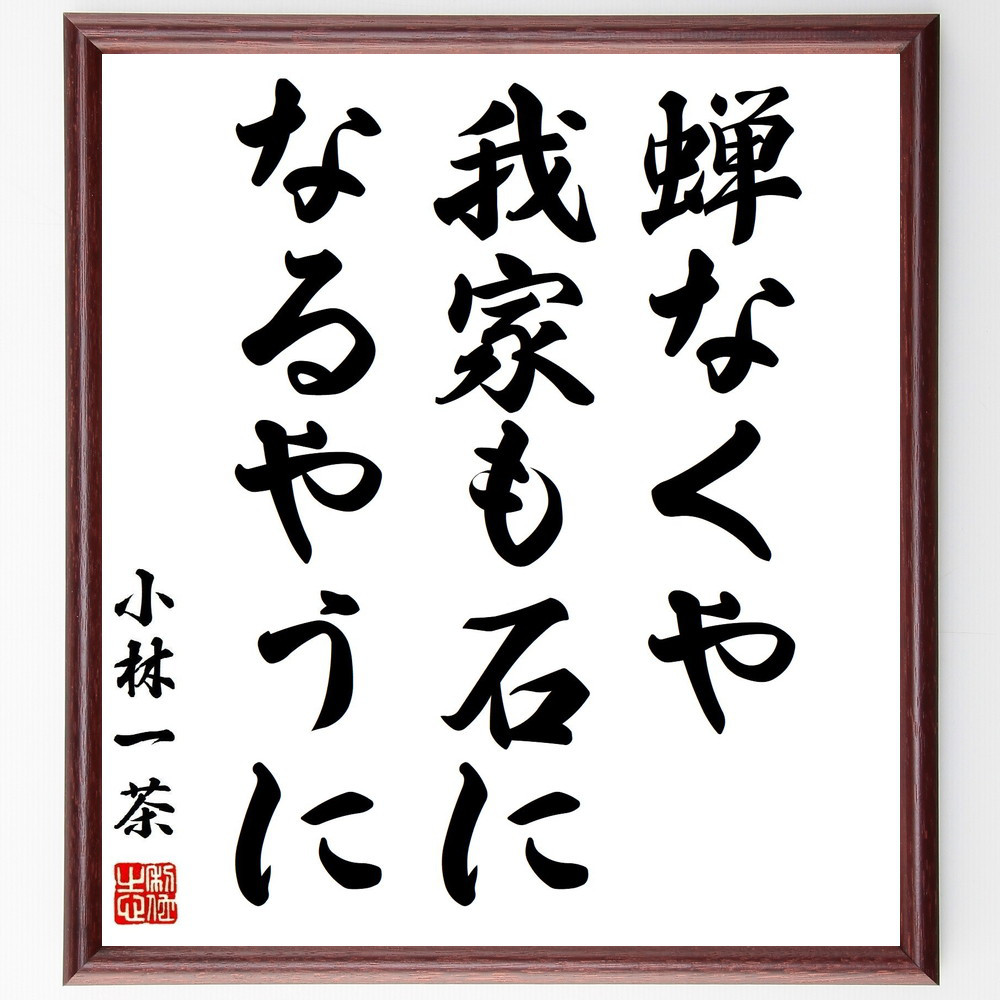 蝉なくや
我家も石に
なるやうに
小林一茶